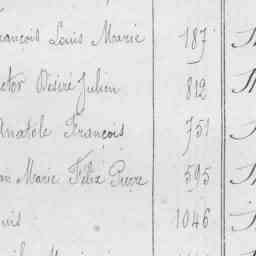 rançois Louis Marie 187
ctor Désiré Julien 812
Anatole François 751
an Marie Félix Pierre 595
uis 1046